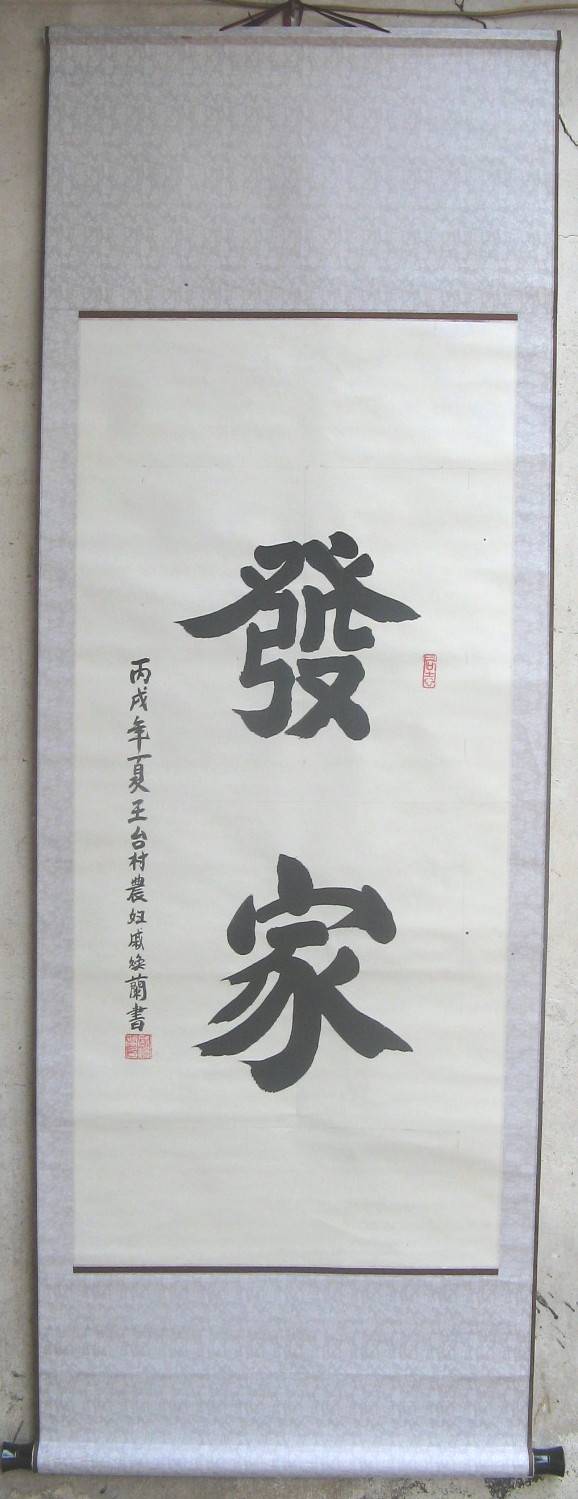 發家
丙戌年夏王台村農妇戚焕蘭書